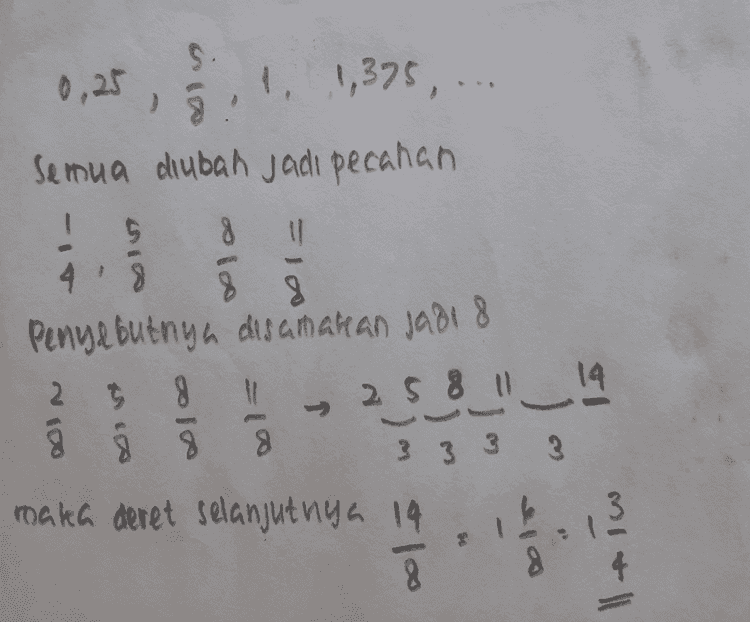 0,25 , 5/8 , 1, 1,375, ...
Semua diubah jadi pecahan
1/4 , 5/8 8/8 11/8
Penyebutnya disamakan jadi 8
2/8 5/8 8/8 11/8 → 2 5 8 11 14
3 3 3 3
maka deret selanjutnya 14/8 = 1 6/8 = 1 3/4